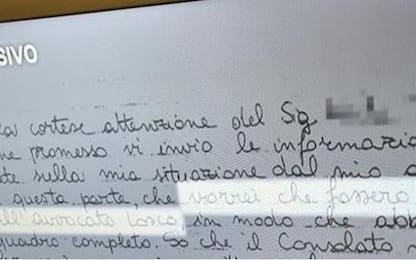 SIVO
cortese attenzione del Sig
promesso vi invio le informazio
sulla mia situazione dal mio a
questa parte, che vorrei che fossero
avvocato Losco, in modo che abb
quadro completo. So che il Consolato